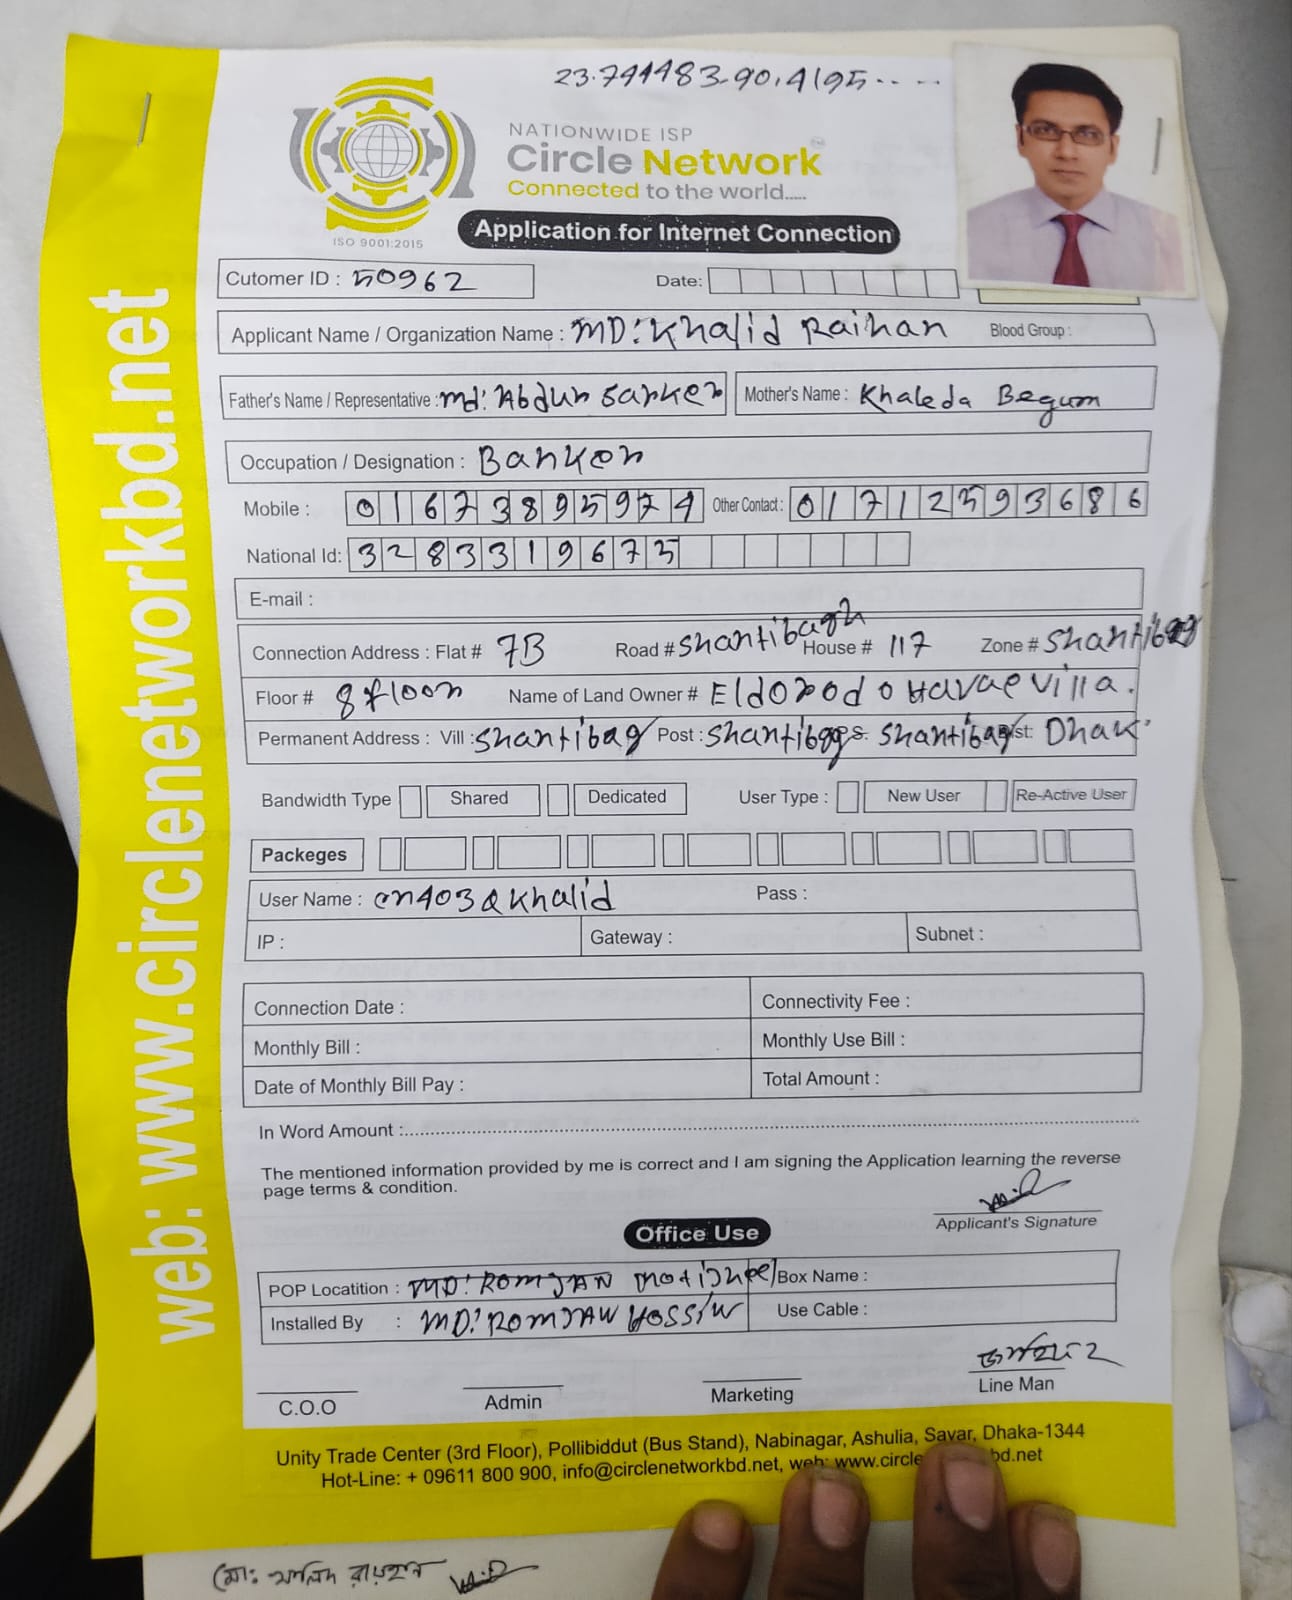 23.744483-90.4195-- --
NATIONWIDE ISP
Circle Network
Connected to the world.....
ISO 9001:2015
Application for Internet Connection
Cutomer ID : 50962 Date:
Applicant Name / Organization Name : MD: Khalid Raihan Blood Group :
Father's Name / Representative : md: Abdur Sarker Mother's Name : Khaleda Begum
Occupation / Designation : Banker
Mobile : 01673895974 Other Contact : 01712593686
National Id: 3283319675
E-mail :
Connection Address : Flat # 7B Road # Shantibagh House # 117 Zone # Shantibag
Floor # 8 floor Name of Land Owner # Eldorodo Villa.
Permanent Address : Vill : Shantibag Post : Shantibag Shantibag Dist: Dhak
Bandwidth Type Shared Dedicated User Type : New User Re-Active User
Packeges
User Name : cn403@khalid Pass :
IP : Gateway : Subnet :
Connection Date : Connectivity Fee :
Monthly Bill : Monthly Use Bill :
Date of Monthly Bill Pay : Total Amount :
In Word Amount :
The mentioned information provided by me is correct and I am signing the Application learning the reverse
page terms & condition.
Applicant's Signature
Office Use
POP Locatition : MD: ROMJAN Motijheel Box Name :
Installed By : MD: ROMJAN HOSSIN Use Cable :
C.O.O Admin Marketing Line Man
Unity Trade Center (3rd Floor), Pollibiddut (Bus Stand), Nabinagar, Ashulia, Savar, Dhaka-1344
Hot-Line: + 09611 800 900, info@circlenetworkbd.net, web: www.circle bd.net
মোঃ খালিদ রায়হান
web: www.circlenetworkbd.net